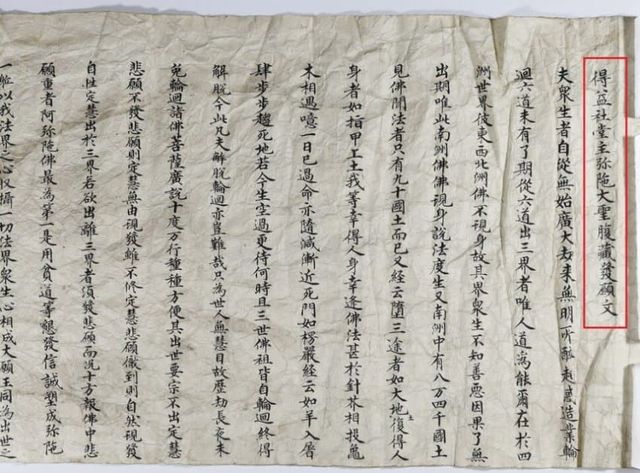 得益社堂主弥陁大聖腹藏發願文
夫衆生者自從無始廣大劫来無明所酔起萬造業輪
迴六道未有了期從六道出三界者唯人道爲能爾在於四
洲世界彼東西北洲佛不現身故其界衆生不知善惡因果了無
出期唯此南洲佛佛現身說法度生又南洲中有八万四千國土
見佛聞法者只有九十國土而已又経云墮三途者如大地復得人
身者如指甲上土我等幸得人身幸逢佛法甚於針芥相投龜
木相遇噫一日已過命亦隨減漸近死門如楞嚴経云如羊入屠
肆步步趍死地若今生空過更待何時且三世佛祖皆自輪迴終得
解脫今此凡夫解脫輪迴亦豈難哉只為世人無慧目故歷劫長夜未
免輪迴諸佛菩薩廣說十度万行種種方便其出世要宗不出定慧
悲願不發悲願則定慧無由現發雖不修定慧悲願到則自然現發
自性定慧出於三界若欲出離三界者須發悲願而況十方報佛中悲
願重者阿弥陁佛最為第一是用貧道等懇發信誠塑成弥陁
一軀以我法界之心収攝一切法界衆生心相成大願王同為出世之